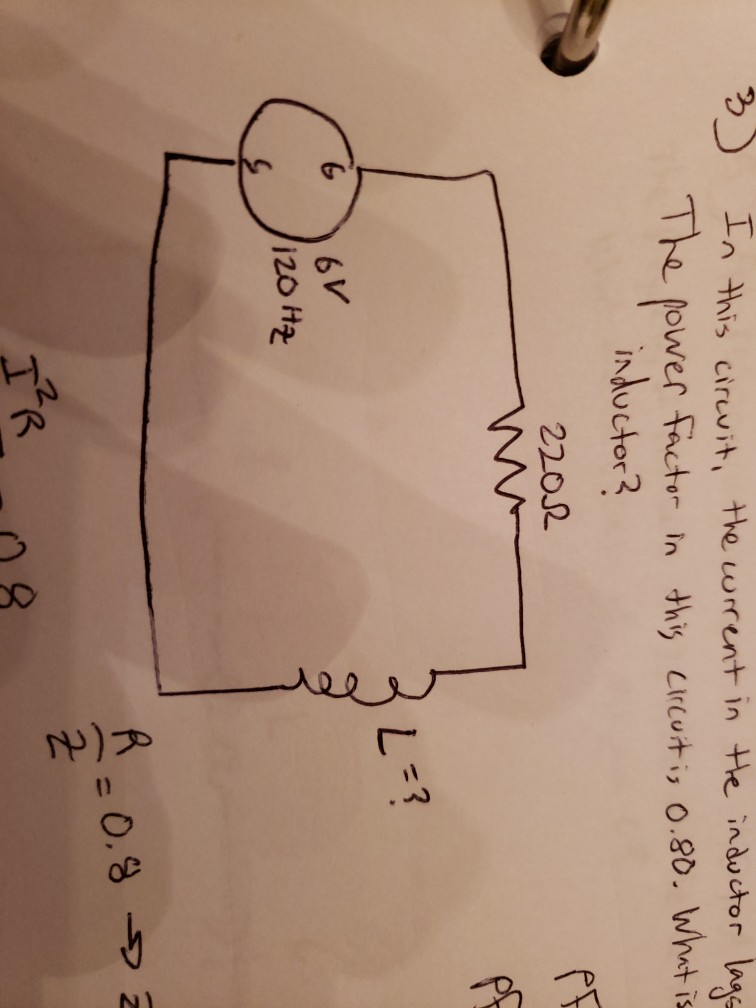 3) In this circuit, the current in the inductor lags
The power factor in this circuit is 0.80. What is
inductor?
220Ω
6V
120 Hz
G
S
L=?
PF
PF
R/Z = 0.8 →
I²R
0.8